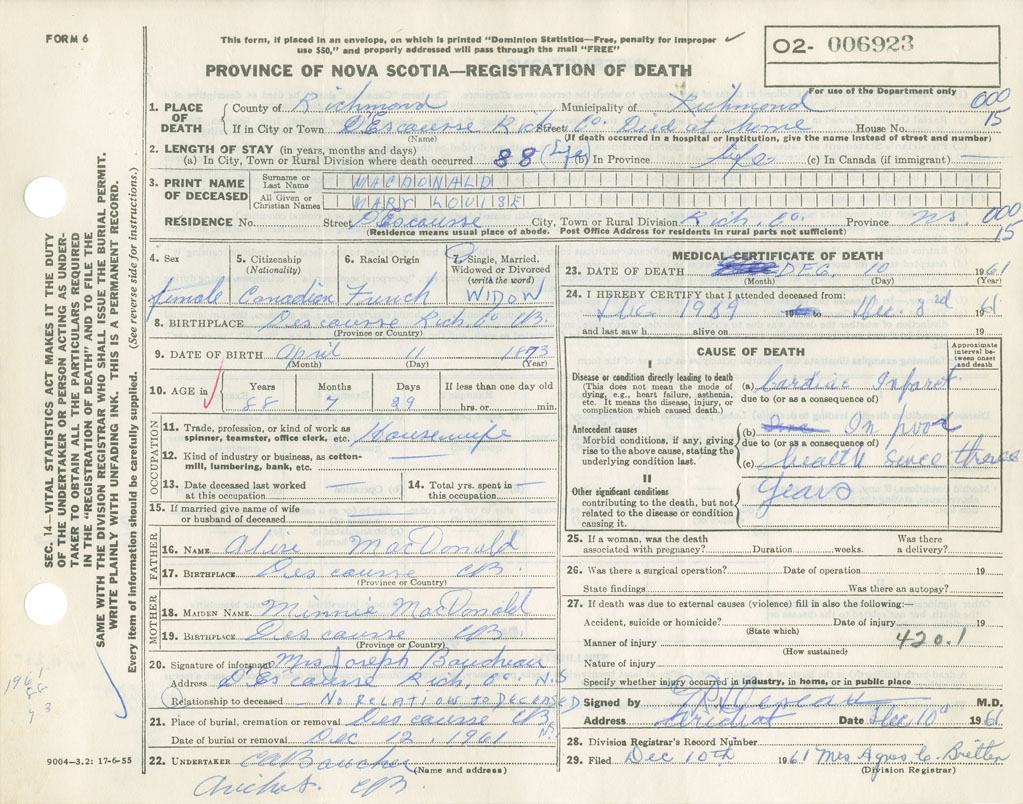 FORM 6
This form, if placed in an envelope, on which is printed "Dominion Statistics—Free, penalty for improper
use $50," and properly addressed will pass through the mail "FREE"
02- 006923
PROVINCE OF NOVA SCOTIA—REGISTRATION OF DEATH
For use of the Department only
000
15
1. PLACE OF DEATH
County of Richmond Municipality of Richmond
If in City or Town D'Escousse Rich Street Co. Died at home House No.
(Name) (If death occurred in a hospital or institution, give the name instead of street and number)
2. LENGTH OF STAY (in years, months and days)
(a) In City, Town or Rural Division where death occurred 88 (Life) (b) In Province Life (c) In Canada (if immigrant) —
3. PRINT NAME OF DECEASED
Surname or Last Name MACDONALD
All Given or Christian Names MARY LOUISE
RESIDENCE No. Street D'Escousse City, Town or Rural Division Rich. Co. Province N.S.
000
15
(Residence means usual place of abode. Post Office Address for residents in rural parts not sufficient)
4. Sex female
5. Citizenship (Nationality) Canadian
6. Racial Origin French
7. Single, Married, Widowed or Divorced (write the word) WIDOW
8. BIRTHPLACE Descousse Rich. Co CB.
(Province or Country)
9. DATE OF BIRTH April 11 1873
(Month) (Day) (Year)
10. AGE in Years 88 Months 7 Days 29 If less than one day old hrs. or min.
OCCUPATION
11. Trade, profession, or kind of work as spinner, teamster, office clerk, etc. Housewife
12. Kind of industry or business, as cotton-mill, lumbering, bank, etc. —
13. Date deceased last worked at this occupation —
14. Total yrs. spent in this occupation —
15. If married give name of wife or husband of deceased —
FATHER
16. NAME MacDonald
17. BIRTHPLACE Descousse CB.
(Province or Country)
MOTHER
18. MAIDEN NAME Minnie MacDonald
19. BIRTHPLACE Descousse CB
(Province or Country)
20. Signature of informant Mrs Joseph Boudreau
Address D'Escousse Rich. Co. N.S
Relationship to deceased — NO RELATION TO DECEASED
21. Place of burial, cremation or removal Descousse CB
N.S.
Date of burial or removal Dec 12, 1961
22. UNDERTAKER
(Name and address)
Arichat CB.
MEDICAL CERTIFICATE OF DEATH
23. DATE OF DEATH DEC. 10 1961
(Month) (Day) (Year)
24. I HEREBY CERTIFY that I attended deceased from:
1959 to Dec. 3rd 1961
and last saw h alive on 19
CAUSE OF DEATH
Approximate interval between onset and death
I
Disease or condition directly leading to death
(This does not mean the mode of dying, e.g., heart failure, asthenia, etc. It means the disease, injury, or complication which caused death.)
(a) Cardiac Infarct.
due to (or as a consequence of)
Antecedent causes
Morbid conditions, if any, giving rise to the above cause, stating the underlying condition last.
(b) In poor
due to (or as a consequence of)
(c) health since three
II
years
Other significant conditions
contributing to the death, but not related to the disease or condition causing it.
25. If a woman, was the death associated with pregnancy? Duration weeks. Was there a delivery?
26. Was there a surgical operation? Date of operation 19
State findings Was there an autopsy?
27. If death was due to external causes (violence) fill in also the following:—
Accident, suicide or homicide? Date of injury 19
(State which)
Manner of injury 420.1
(How sustained)
Nature of injury
Specify whether injury occurred in industry, in home, or in public place
Signed by M.D.
Address Arichat Date Dec 10th 1961
28. Division Registrar's Record Number
29. Filed Dec 10th 1961 Mrs Agnes C. Bretten
(Division Registrar)
SEC. 14—VITAL STATISTICS ACT MAKES IT THE DUTY
OF THE UNDERTAKER OR PERSON ACTING AS UNDER-
TAKER TO OBTAIN ALL THE PARTICULARS REQUIRED
IN THE "REGISTRATION OF DEATH" AND TO FILE THE
SAME WITH THE DIVISION REGISTRAR WHO SHALL ISSUE THE BURIAL PERMIT.
WRITE PLAINLY WITH UNFADING INK. THIS IS A PERMANENT RECORD.
Every item of information should be carefully supplied. (See reverse side for instructions.)
1961
88
73
9004—3.2: 17-6-55